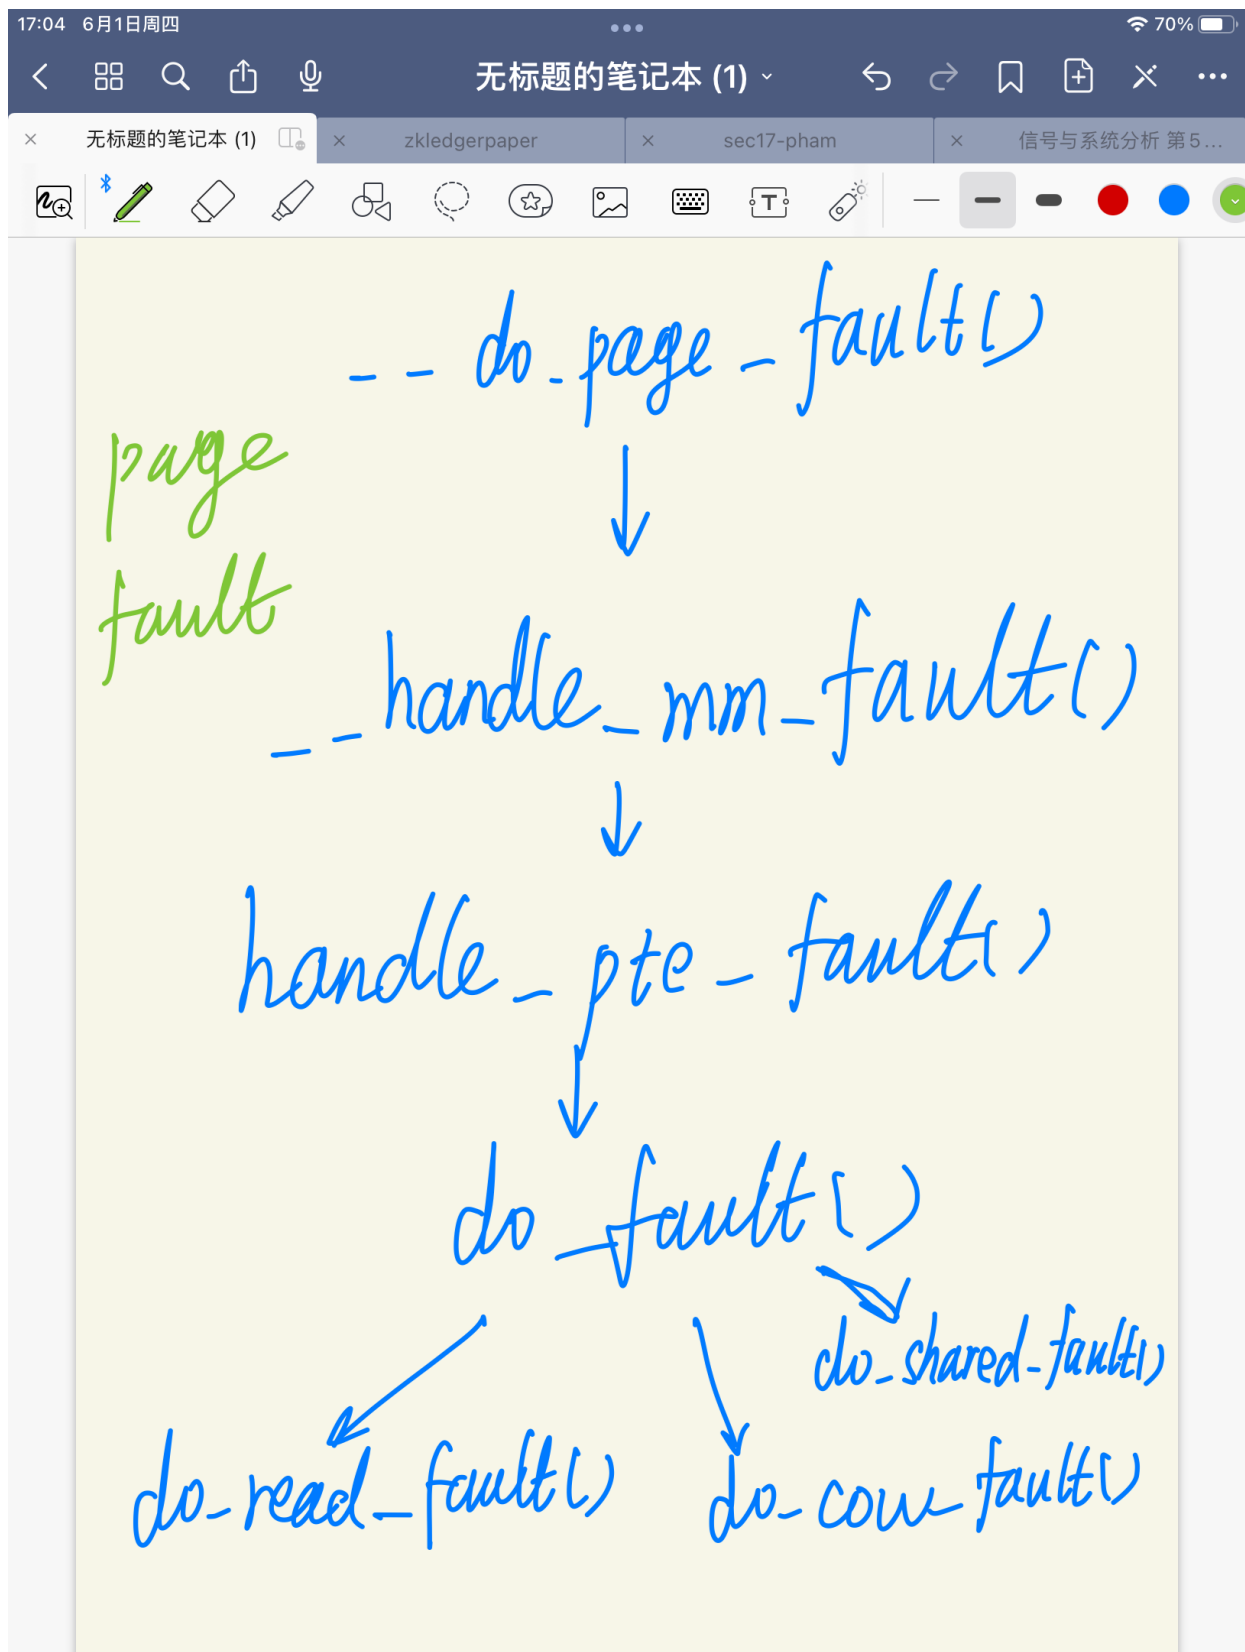 17:04 6月1日周四 70%
无标题的笔记本 (1)
无标题的笔记本 (1) zkledgerpaper sec17-pham 信号与系统分析 第5...
T
__do_page_fault()
page
fault
__handle_mm_fault()
handle_pte_fault()
do_fault()
do_shared_fault()
do_read_fault() do_cow_fault()